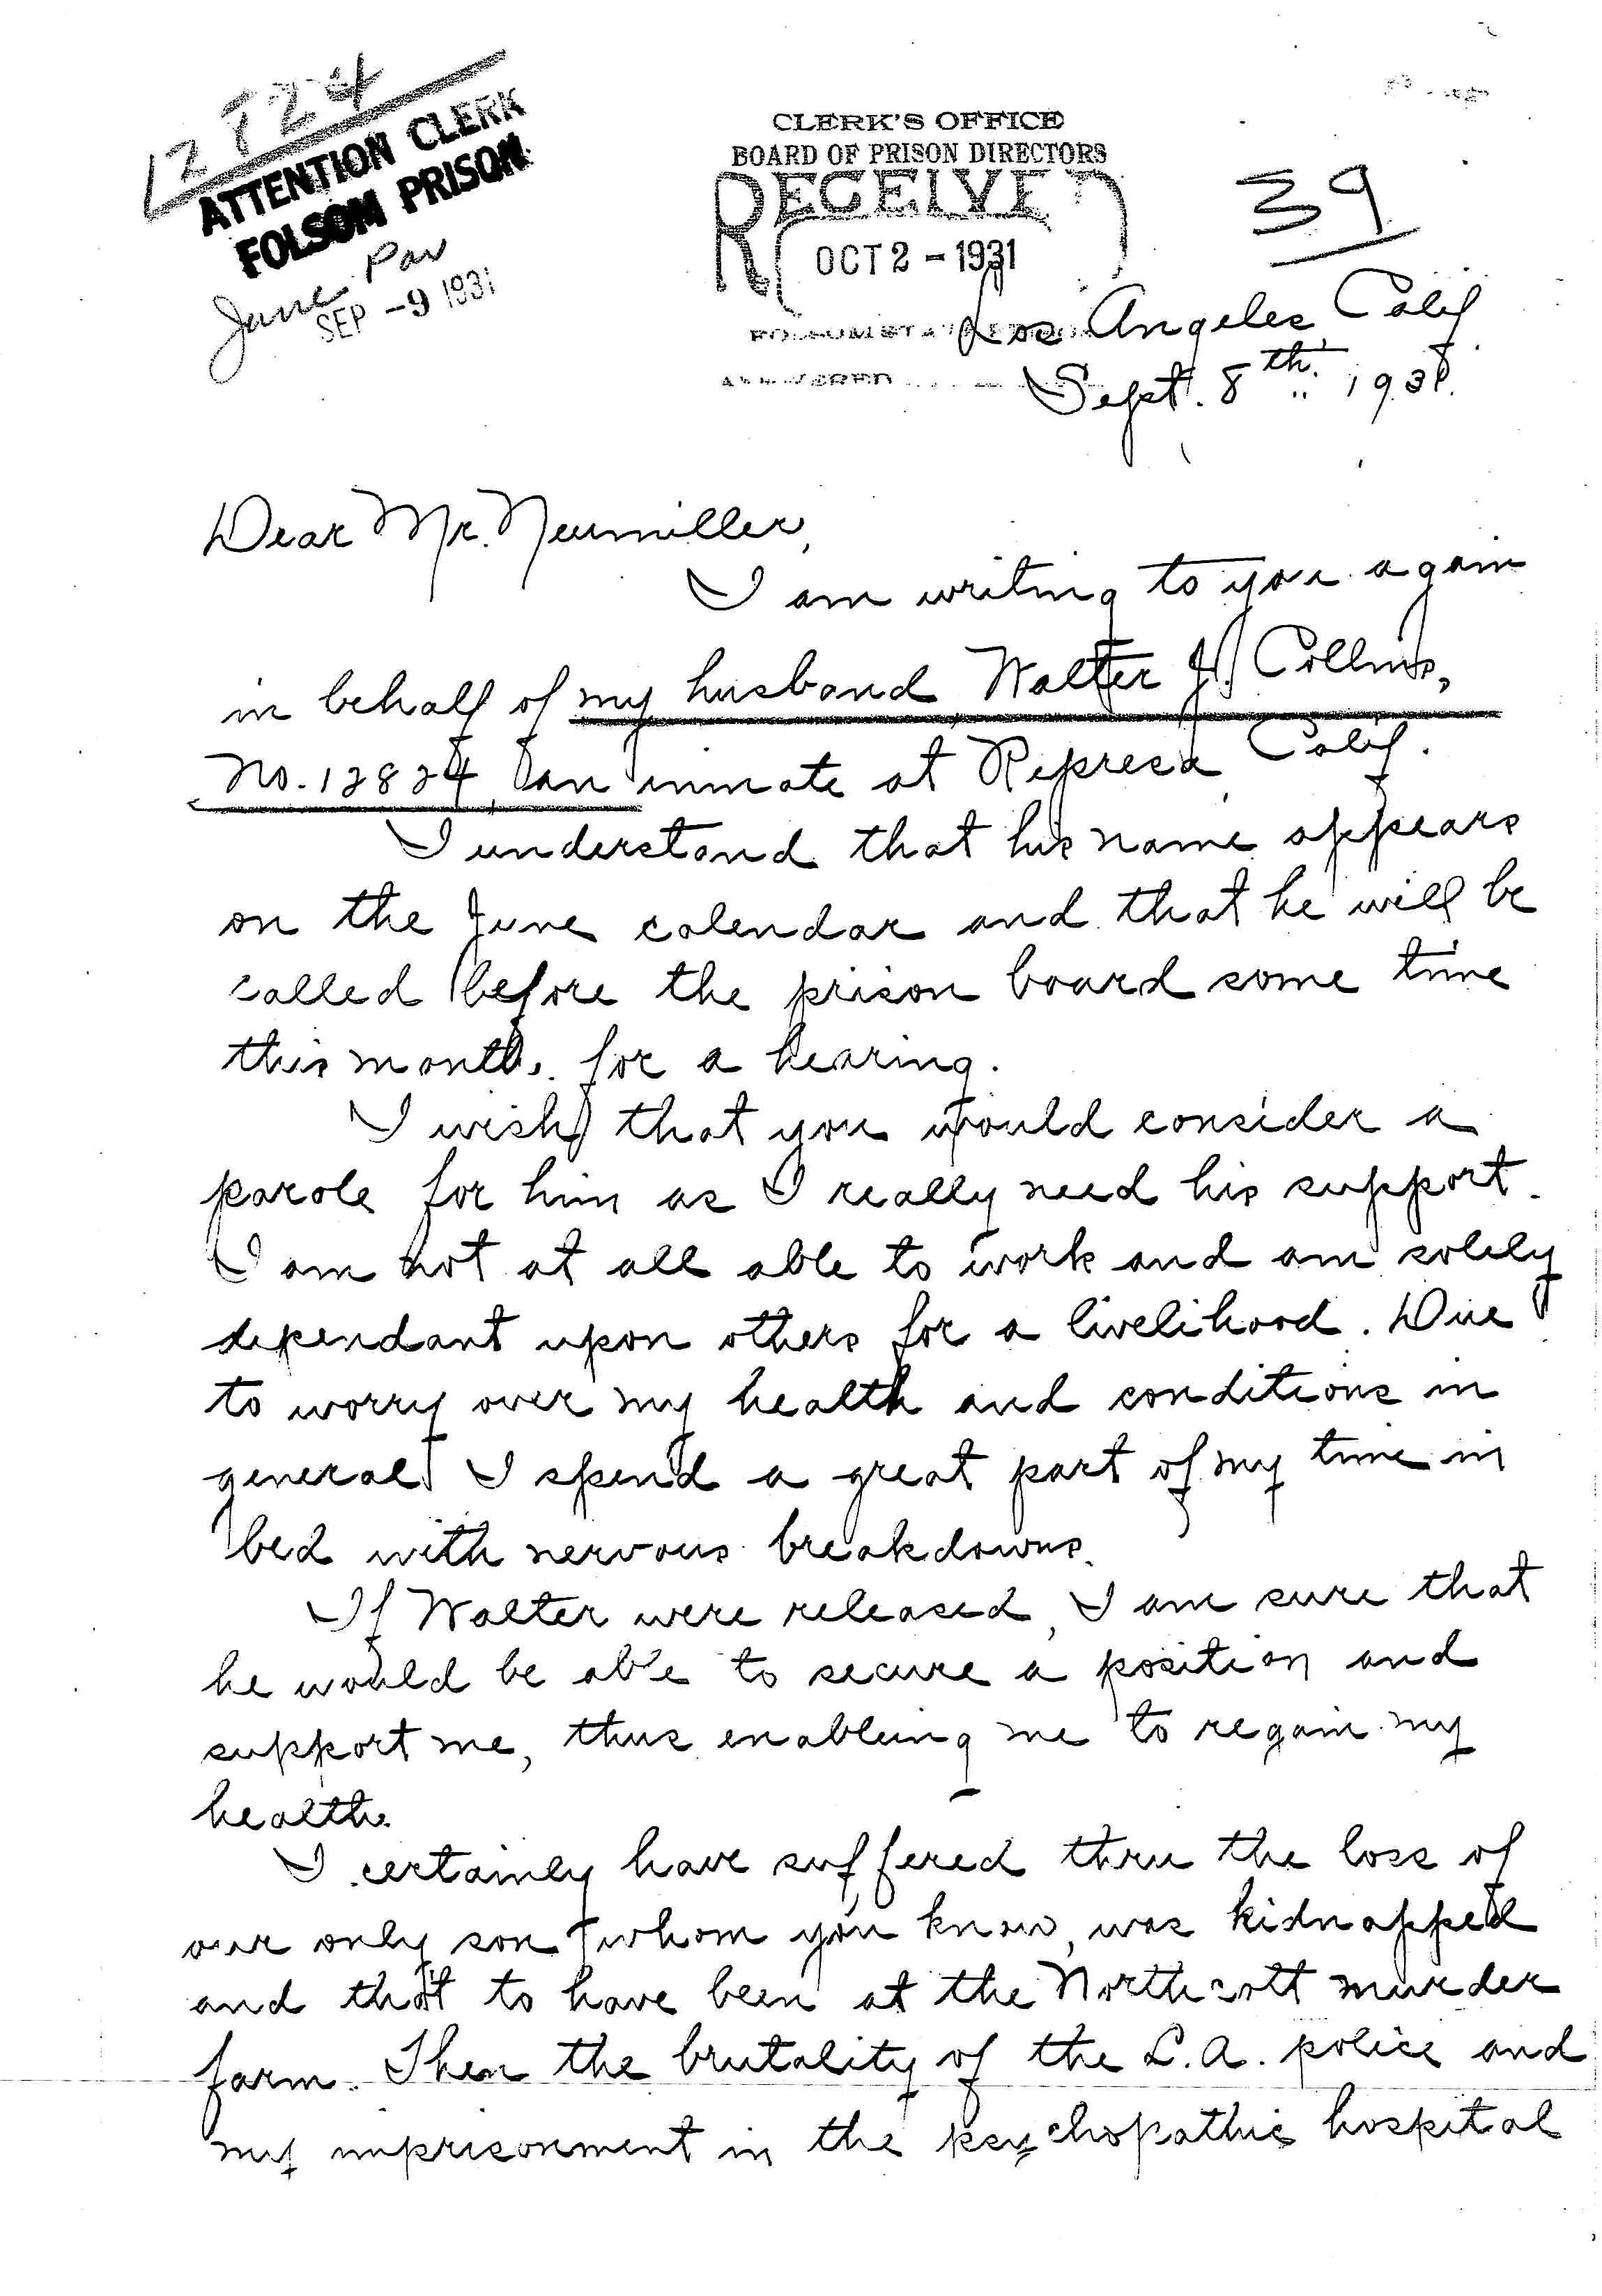 12824
ATTENTION CLERK
FOLSOM PRISON
June Par
SEP -9 1931
CLERK'S OFFICE
BOARD OF PRISON DIRECTORS
RECEIVED
OCT 2 - 1931
39
Los Angeles, Calif
Sept. 8th, 1931.
Dear Mr. Neumiller,
I am writing to you again
in behalf of my husband, Walter J. Collins,
No. 12824, an inmate at Represa, Calif.
I understand that his name appears
on the June calendar and that he will be
called before the prison board some time
this month, for a hearing.
I wish that you would consider a
parole for him as I really need his support.
I am not at all able to work and am solely
dependant upon others for a livelihood. Due
to worry over my health and conditions in
general I spend a great part of my time in
bed with nervous breakdowns.
If Walter were released, I am sure that
he would be able to secure a position and
support me, thus enableing me to regain my
health.
I certainly have suffered thru the loss of
our only son, whom you know, was kidnapped
and thot to have been at the Northcott murder
farm. Then the brutality of the L.A. police and
my imprisonment in the psychopathic hospital